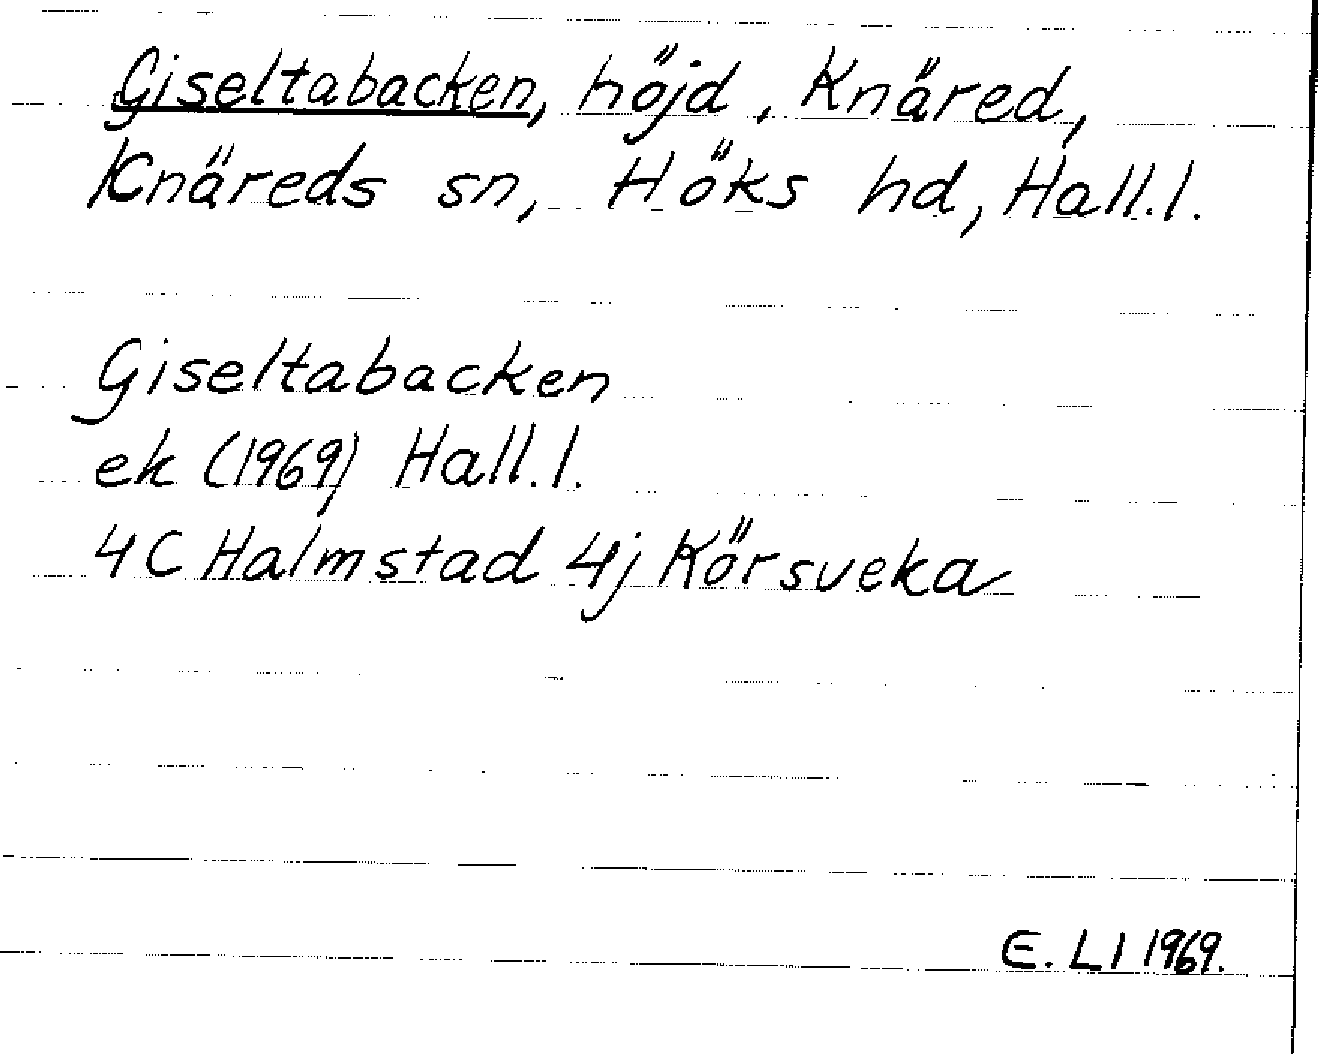 Giseltabacken, höjd, Knäred,
Knäreds sn, Höks hd, Hall.l.
Giseltabacken
ek (1969) Hall.l.
4C Halmstad 4j Körsveka
E. LI 1969.